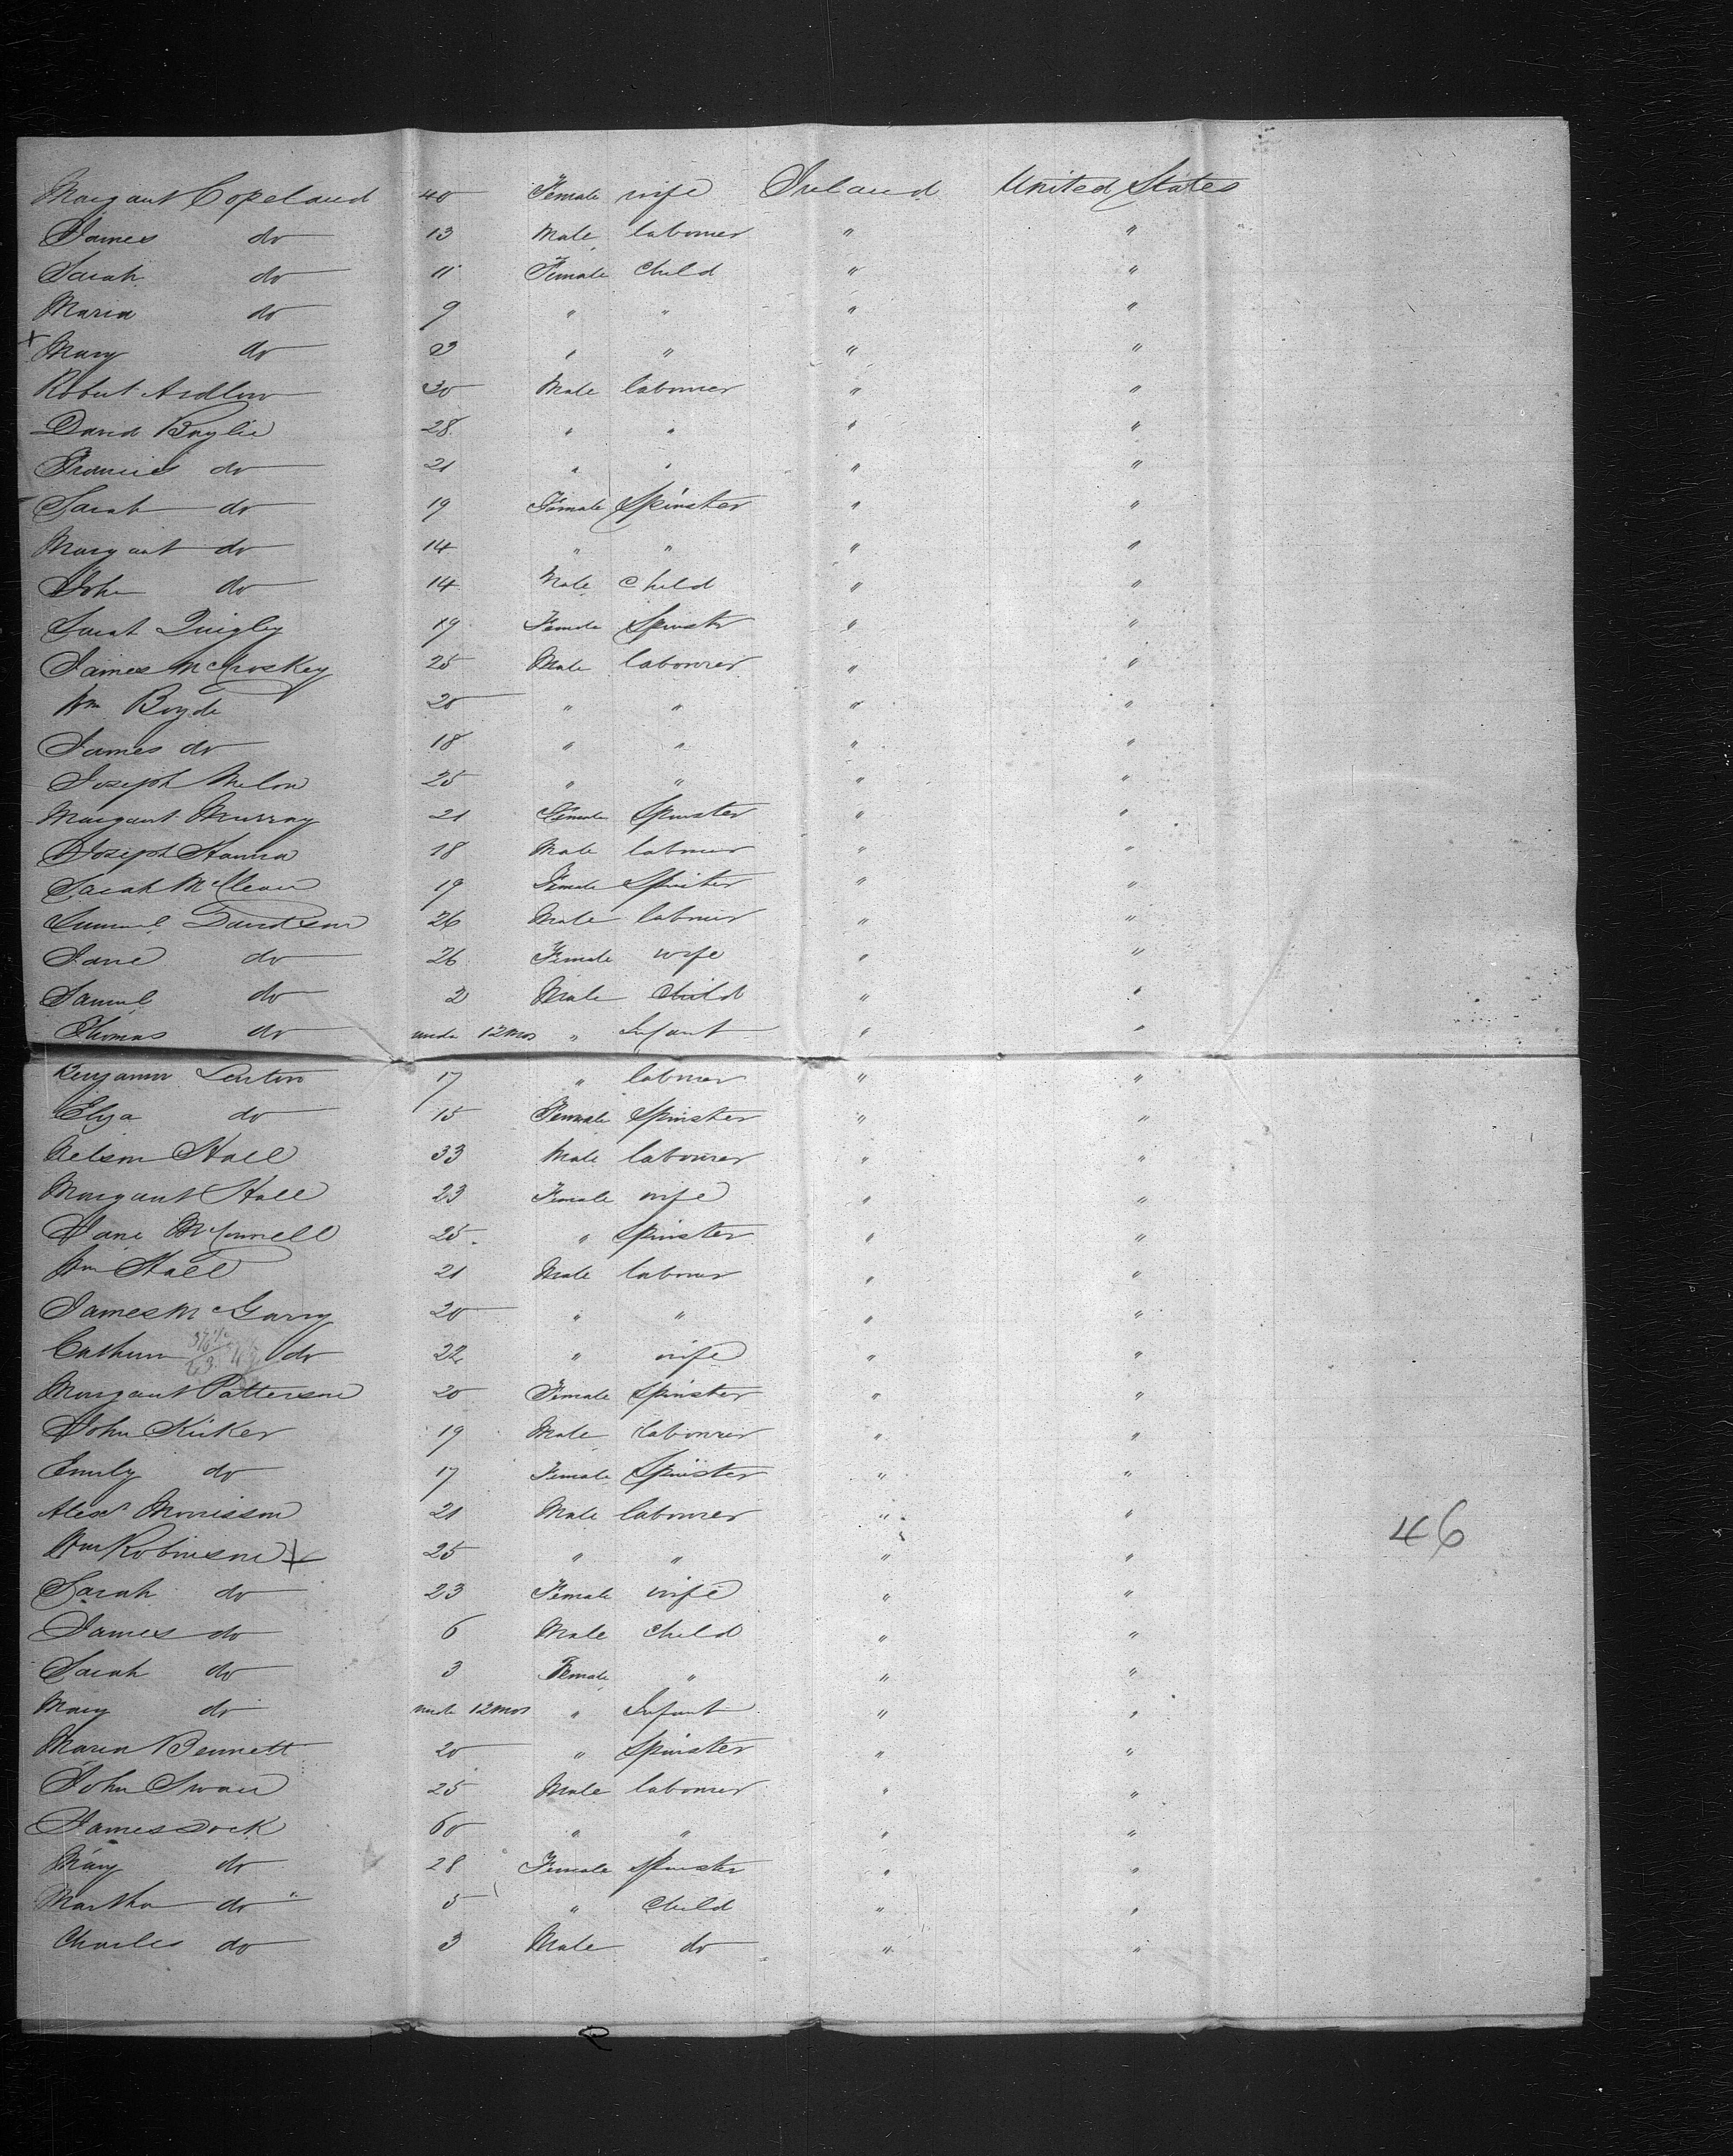 Margaret Copeland 40 Female wife Ireland United States
James do 13 Male labourer " "
Sarah do 11 Female Child " "
Maria do 9 " " " "
+ Mary do 3 " " " "
Robert Ardlow 30 Male labourer " "
David Baylie 28 " " " "
Francies do 21 " " " "
Sarah do 19 Female Spinster " "
Margaret do 14 " " " "
John do 14 Male Child " "
Sarah Quigley 19 Female Spinstr " "
James McCroskey 25 Male labourer " "
Wm Boyde 20 " " " "
James do 18 " " " "
Joseph Melon 25 " " " "
Margaret Murray 21 Female Spinster " "
Joseph Hanna 18 Male labourer " "
Sarah McClean 19 Female Spinster " "
Samuel Davidson 26 Male labourer " "
Jane do 26 Female wife " "
Samuel do 2 Male Child " "
Thomas do under 12 mos " Infant " "
Benjamin Lenton 17 " labourer " "
Eliza do 15 Female Spinster " "
Nelson Hall 33 Male labourer " "
Margaret Hall 23 Female wife " "
Jane McConnell 25 " Spinster " "
Wm Hall 21 Male labourer " "
James McGarry 20 " " " "
Cathern do 22 " wife " "
Margaret Patterson 20 Female Spinster " "
John Kirker 19 Male labourer " "
Emily do 17 Female Spinster " "
Alexr Morrisson 21 Male labourer " "
Wm Robinson + 25 " " " "
46
Sarah do 23 Female wife " "
James do 6 Male Child " "
Sarah do 3 Female " " "
Mary do under 12 mos " Infant " "
Maria Bennett 20 " Spinster " "
John Swan 25 Male labourer " "
James Dock 60 " " " "
Mary do 28 Female Spinster " "
Martha do 5 " Child " "
Charles do 3 Male do " "